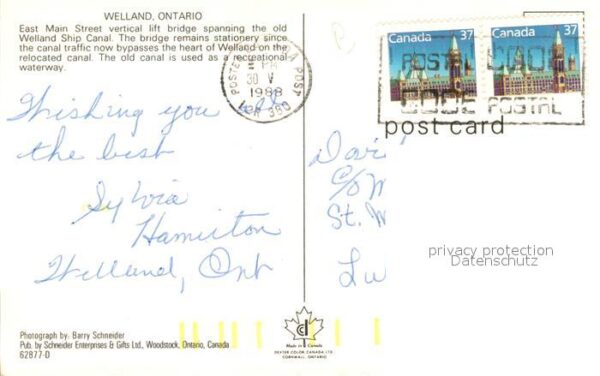 WELLAND, ONTARIO
East Main Street vertical lift bridge spanning the old
Welland Ship Canal. The bridge remains stationary since
the canal traffic now bypasses the heart of Welland on the
relocated canal. The old canal is used as a recreational
waterway.
POST
30 V
1988
Canada 37
Canada 37
POSTAL CODE
CODE POSTAL
post card
Wishing you all
the best
Sylvia
Hamilton
Welland, Ont
C/O
St.
privacy protection
Datenschutz
Photograph by: Barry Schneider
Pub. by Schneider Enterprises & Gifts Ltd., Woodstock, Ontario, Canada
62877-D
Made in Canada
DEXTER COLOR CANADA LTD
CORNWALL, ONTARIO